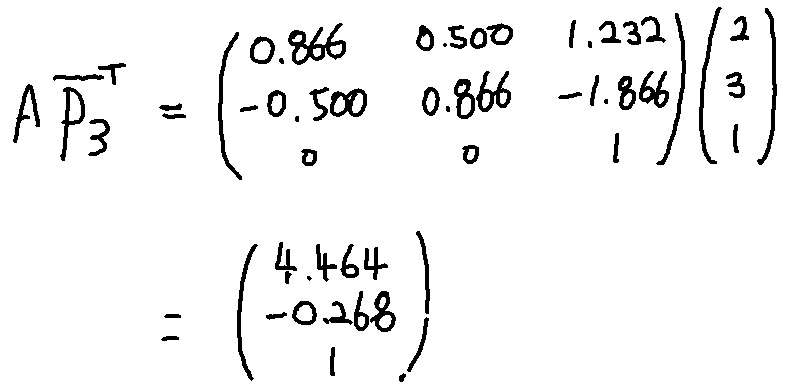 A p̅₃ᵀ = (0.866 0.500 1.232) (2)
(-0.500 0.866 -1.866) (3)
(0 0 1) (1)
= (4.464)
(-0.268)
(1)